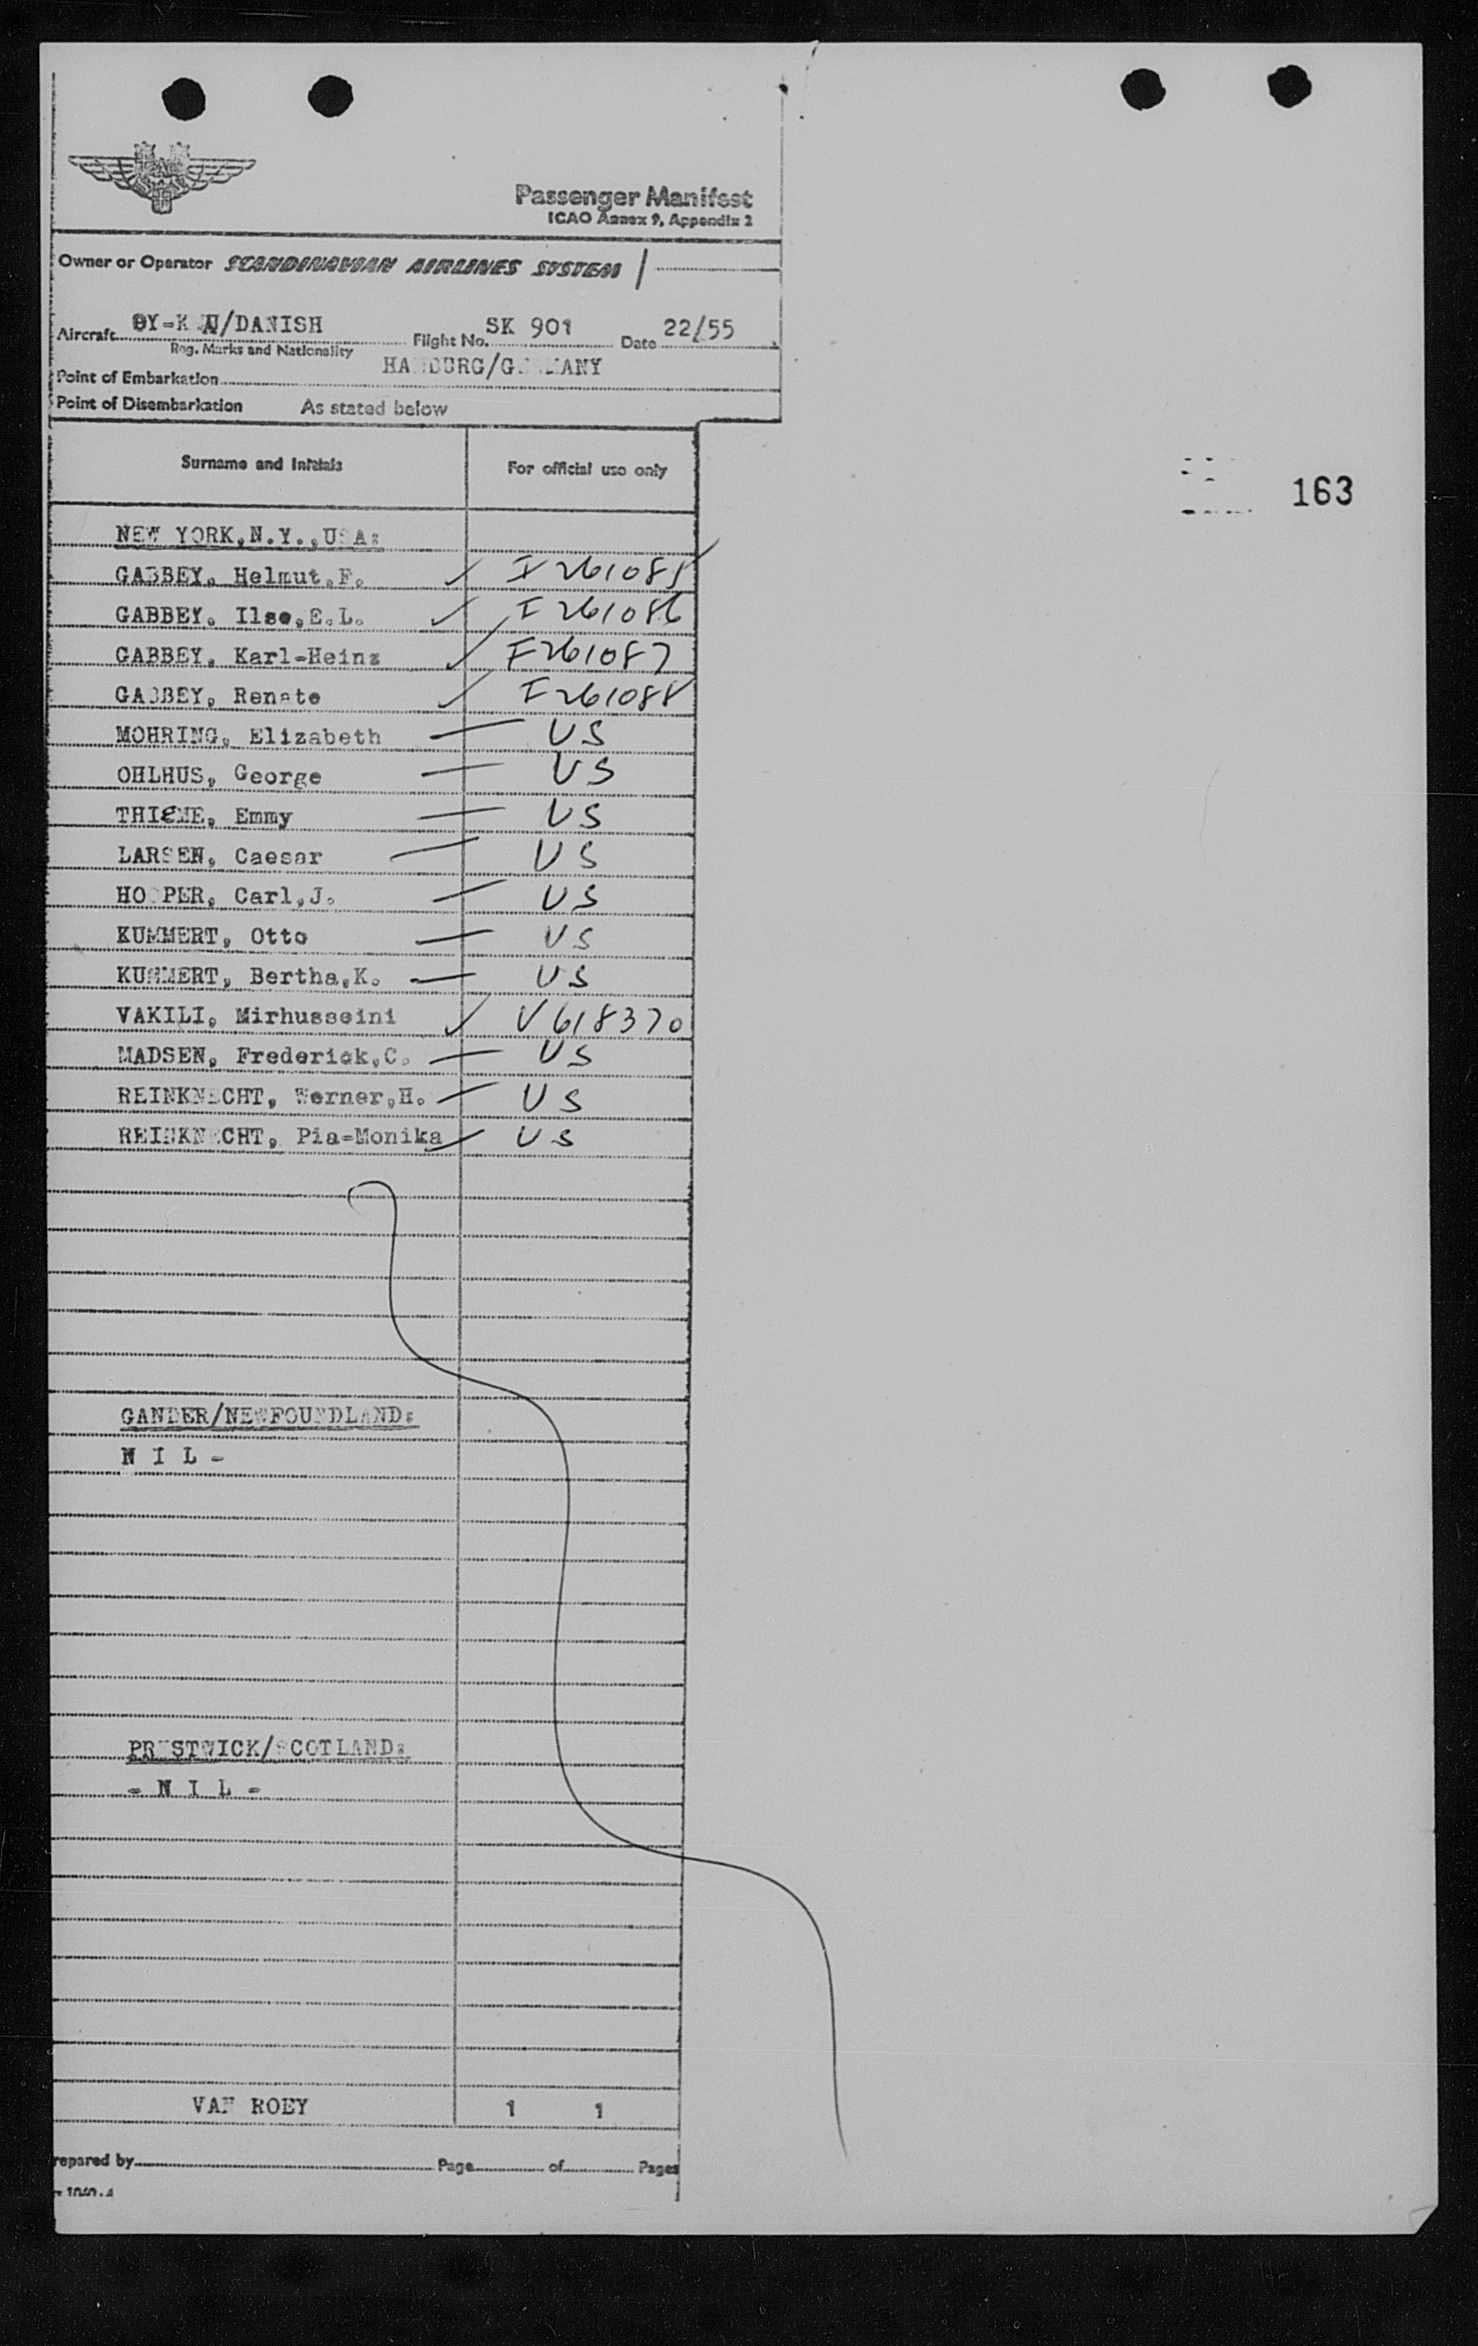 Passenger Manifest
ICAO Annex 9, Appendix 2
Owner or Operator SCANDINAVIAN AIRLINES SYSTEM
Aircraft /DANISH Flight No. SK 901 Date 22/55
Reg. Marks and Nationality
Point of Embarkation HAMBURG/GERMANY
Point of Disembarkation As stated below
Surname and Initials For official use only
163
NEW YORK,N.Y.,USA:
GABBEY, Helmut,F. I 261085
GABBEY, Ilse,E.L. I 261086
GABBEY, Karl-Heinz I 261087
GABBEY, Renate I 261088
MOHRING, Elizabeth US
OHLHUS, George US
THIEME, Emmy US
LARSEN, Caesar US
HOOPER, Carl,J. US
KUMMERT, Otto US
KUMMERT, Bertha,K. US
VAKILI, Mirhusseini V618370
MADSEN, Frederick,C. US
REINKNECHT, Werner,H. US
REINKNECHT, Pia-Monika US
GANDER/NEWFOUNDLAND:
N I L -
PRESTWICK/SCOTLAND:
- N I L -
VAN ROEY 1 1
repared by Page of Pages